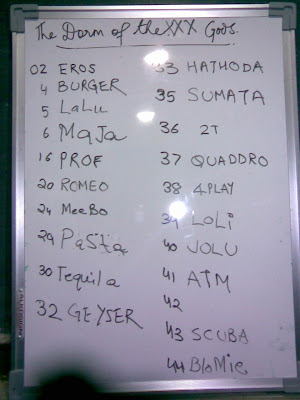 The Dorm of the XXX Gods.
02 EROS
4 BURGER
5 LaLu
6 MaJa
16 PROF
20 ROMEO
24 MeeBo
29 PaSta
30 Tequila
32 GEYSER
33 HATHODA
35 SUMATA
36 2T
37 QUADDRO
38 4PLAY
39 LoLi
40 JOLU
41 ATM
42
43 SCUBA
44 BloMie